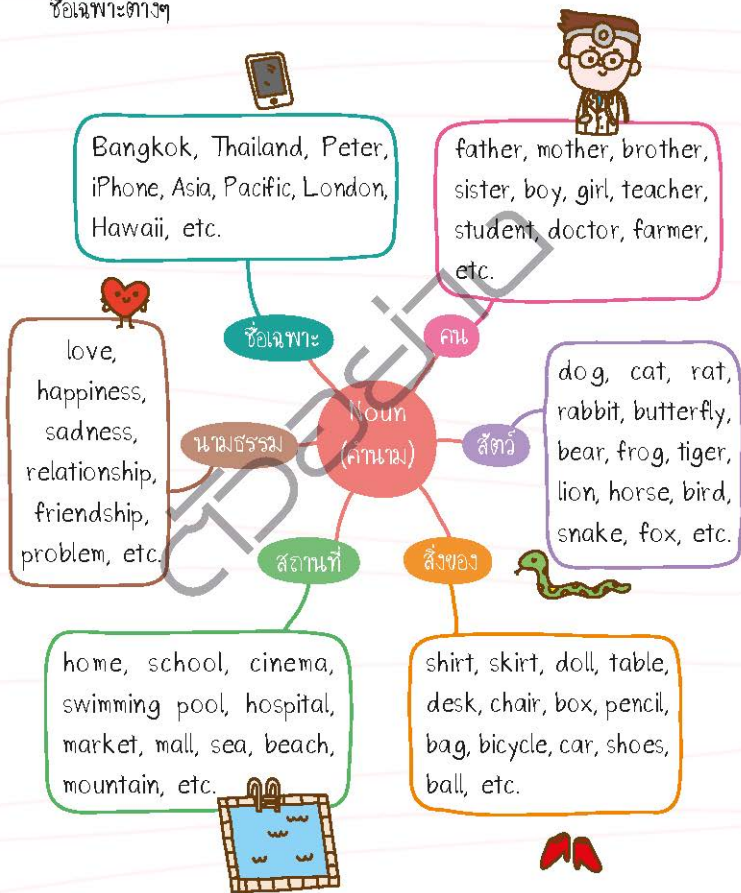 ชื่อเฉพาะต่างๆ
Bangkok, Thailand, Peter,
iPhone, Asia, Pacific, London,
Hawaii, etc.
father, mother, brother,
sister, boy, girl, teacher,
student, doctor, farmer,
etc.
ชื่อเฉพาะ
คน
love,
happiness,
sadness,
relationship,
friendship,
problem, etc.
นามธรรม
Noun
(คำนาม)
สัตว์
dog, cat, rat,
rabbit, butterfly,
bear, frog, tiger,
lion, horse, bird,
snake, fox, etc.
สถานที่
สิ่งของ
home, school, cinema,
swimming pool, hospital,
market, mall, sea, beach,
mountain, etc.
shirt, skirt, doll, table,
desk, chair, box, pencil,
bag, bicycle, car, shoes,
ball, etc.
ตัวอย่าง